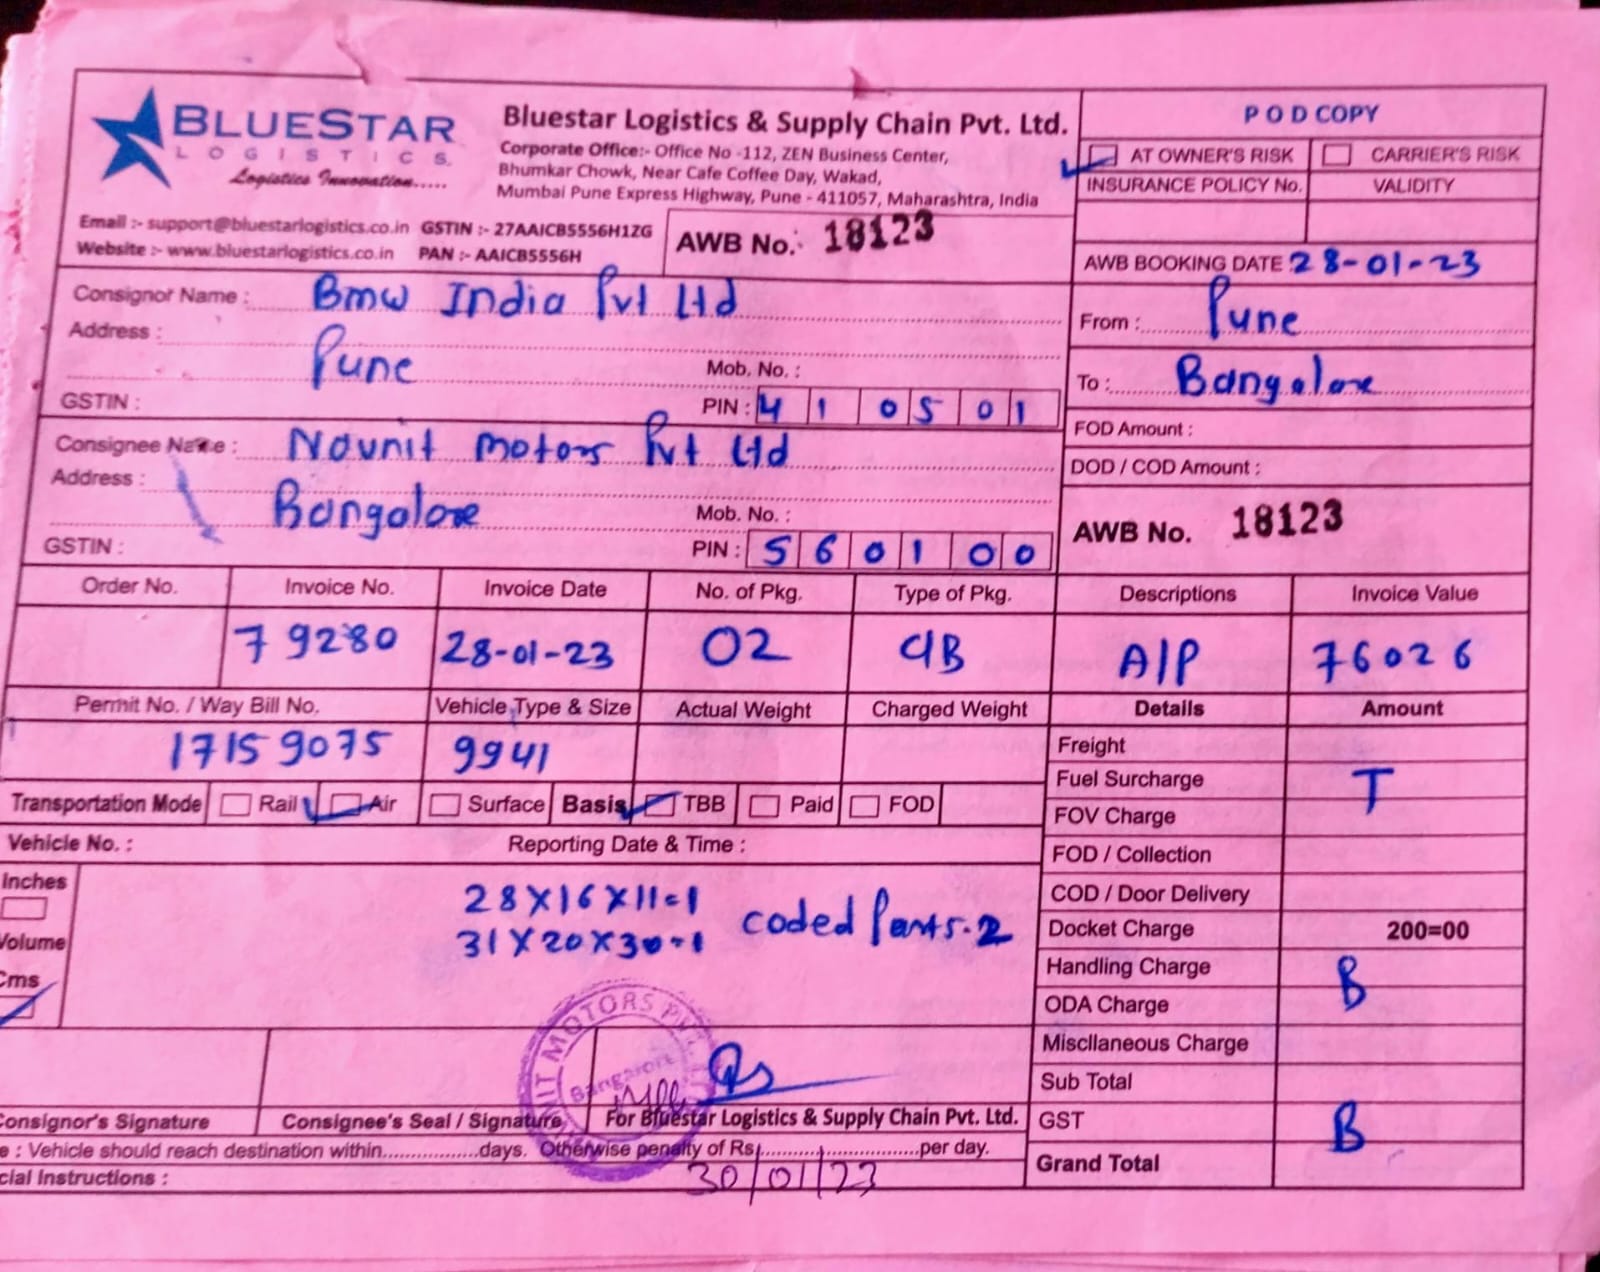 BLUESTAR
LOGISTICS
Logistics Innovation.....
Bluestar Logistics & Supply Chain Pvt. Ltd.
Corporate Office:- Office No -112, ZEN Business Center,
Bhumkar Chowk, Near Cafe Coffee Day, Wakad,
Mumbai Pune Express Highway, Pune - 411057, Maharashtra, India
Email :- support@bluestarlogistics.co.in GSTIN :- 27AAICB5556H1ZG
Website :- www.bluestarlogistics.co.in PAN :- AAICB5556H
AWB No. 18123
P O D COPY
AT OWNER'S RISK CARRIER'S RISK
INSURANCE POLICY No. VALIDITY
AWB BOOKING DATE : 28-01-23
Consignor Name : Bmw India Pvt Ltd
Address :
Pune Mob. No. :
GSTIN : PIN : 410501
From : Pune
To : Bangalore
Consignee Name : Navnit motors Pvt Ltd
Address :
Bangalore Mob. No. :
GSTIN : PIN : 560100
FOD Amount :
DOD / COD Amount :
AWB No. 18123
Order No. Invoice No. Invoice Date No. of Pkg. Type of Pkg. Descriptions Invoice Value
79280 28-01-23 02 CIB A/P 76026
Permit No. / Way Bill No. Vehicle Type & Size Actual Weight Charged Weight Details Amount
17159075 9941
Transportation Mode Rail Air Surface Basis TBB Paid FOD
Vehicle No. : Reporting Date & Time :
Inches
Volume
Cms
28X16X11=1
31X20X30=1
coded Parts-2
Freight
Fuel Surcharge T
FOV Charge
FOD / Collection
COD / Door Delivery
Docket Charge 200=00
Handling Charge B
ODA Charge
Miscllaneous Charge
Sub Total
GST B
Grand Total
MOTORS PV
Bangalore
Consignor's Signature Consignee's Seal / Signature For Bluestar Logistics & Supply Chain Pvt. Ltd.
e : Vehicle should reach destination within.................days. Otherwise penalty of Rs..............................per day.
cial Instructions : 30/01/23